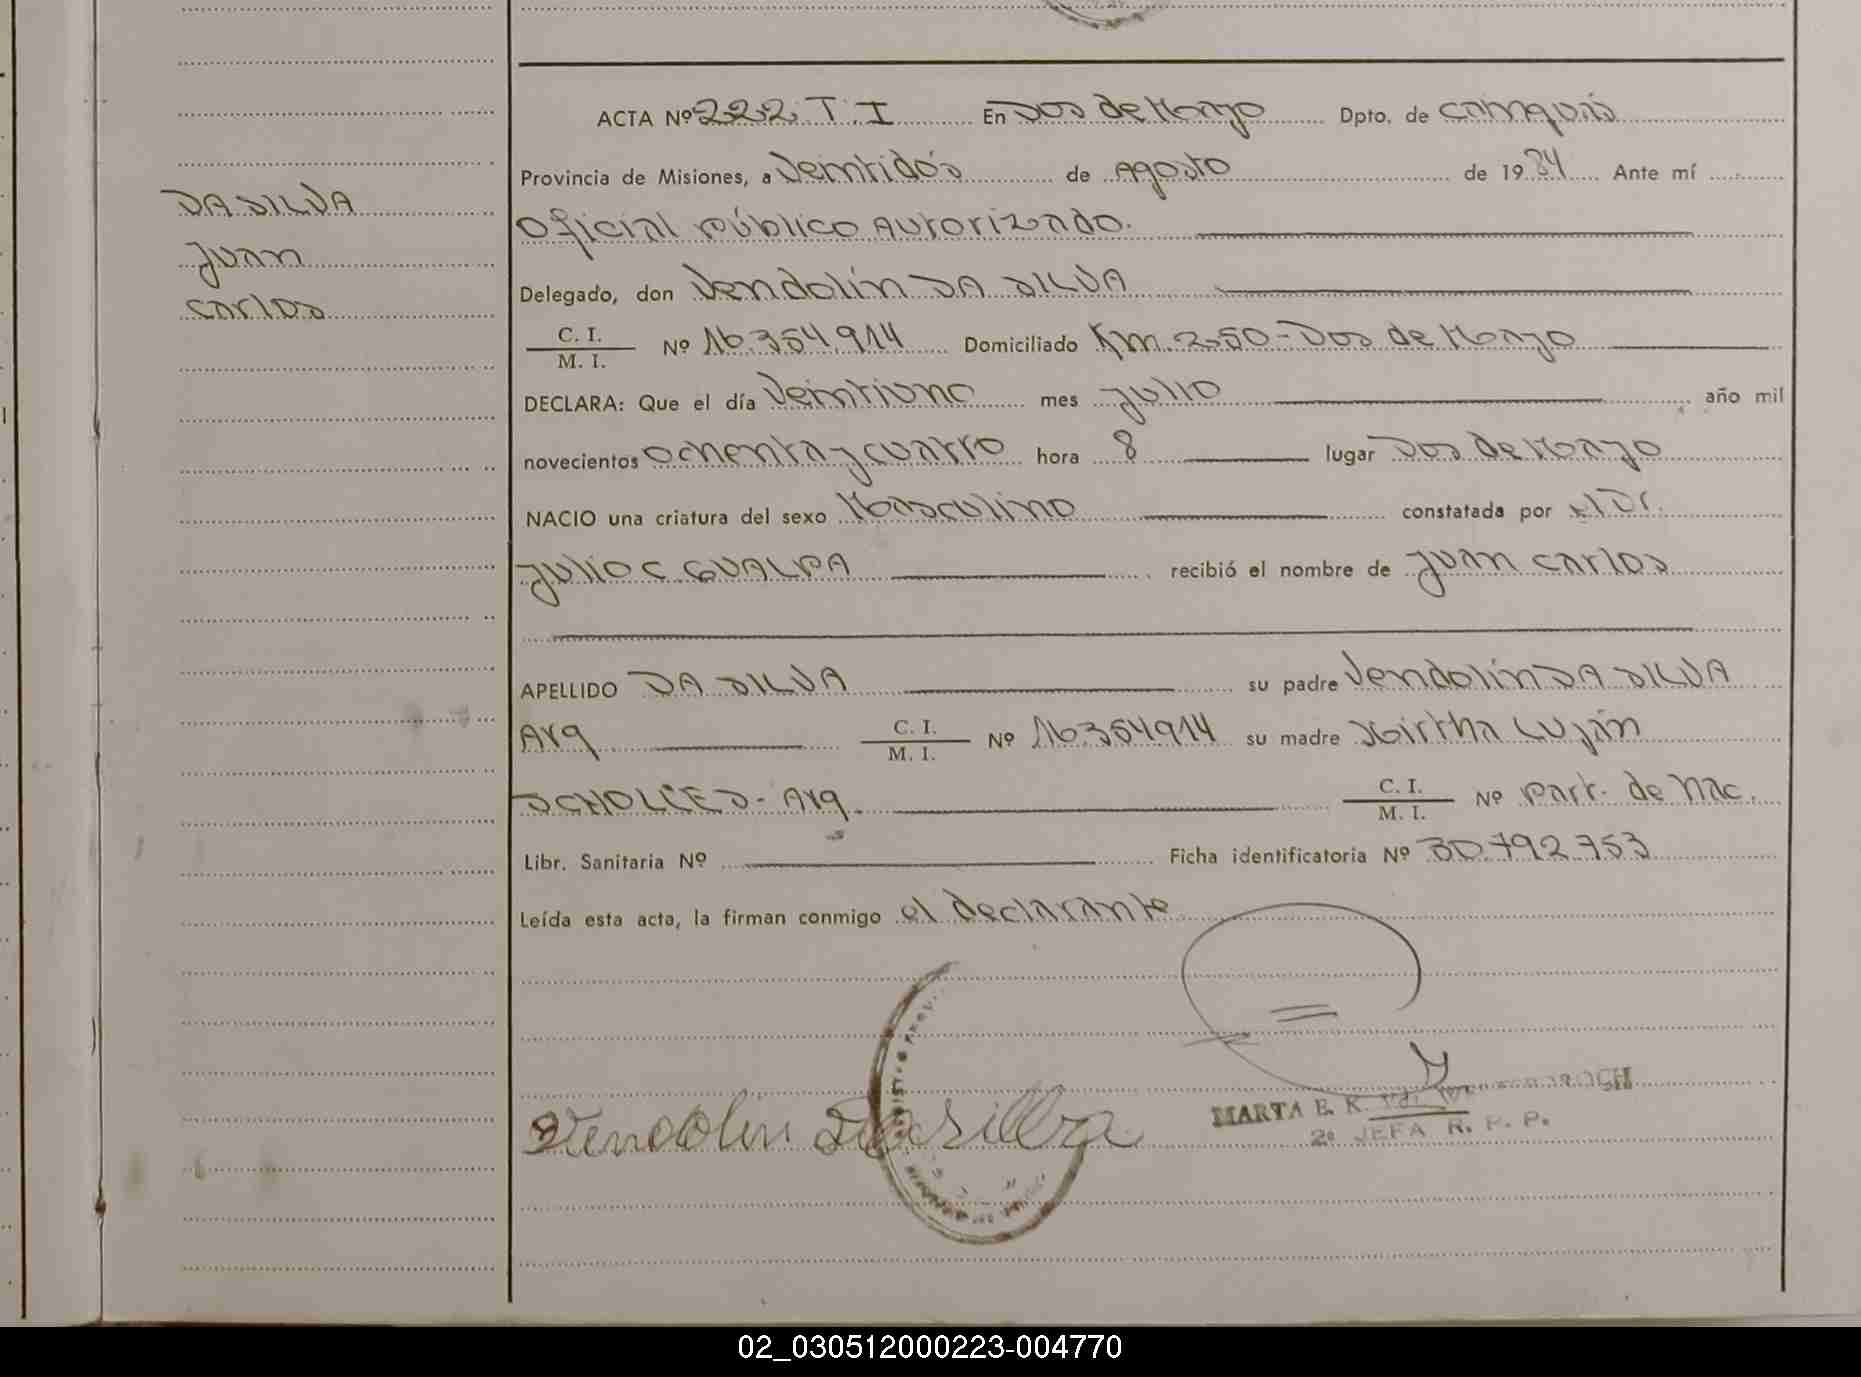 ACTA Nº 222 T. I En Dos de Mayo Dpto. de Cainguás
Provincia de Misiones, a Veintidós de Agosto de 1984 Ante mí
Oficial público Autorizado.
DA SILVA
Juan
Carlos
Delegado, don Vendolín DA SILVA
C. I.
M. I.
Nº 16.354.914 Domiciliado Km. 250 - Dos de Mayo
DECLARA: Que el día Veintiuno mes Julio año mil
novecientos Ochenta y cuatro hora 8 lugar Dos de Mayo
NACIO una criatura del sexo Masculino constatada por el Dr.
Julio C GUALPA recibió el nombre de Juan Carlos
APELLIDO DA SILVA su padre Vendolín DA SILVA
Arg C. I.
M. I.
Nº 16.354.914 su madre Mirtha Luján
SCHOLLES - Arg. C. I.
M. I.
Nº Part. de Nac.
Libr. Sanitaria Nº Ficha identificatoria Nº 30.792.753
Leída esta acta, la firman conmigo el declarante
Vendolin Da Silva
MARTA E. K.
2º JEFA R. P. P.
02_030512000223-004770